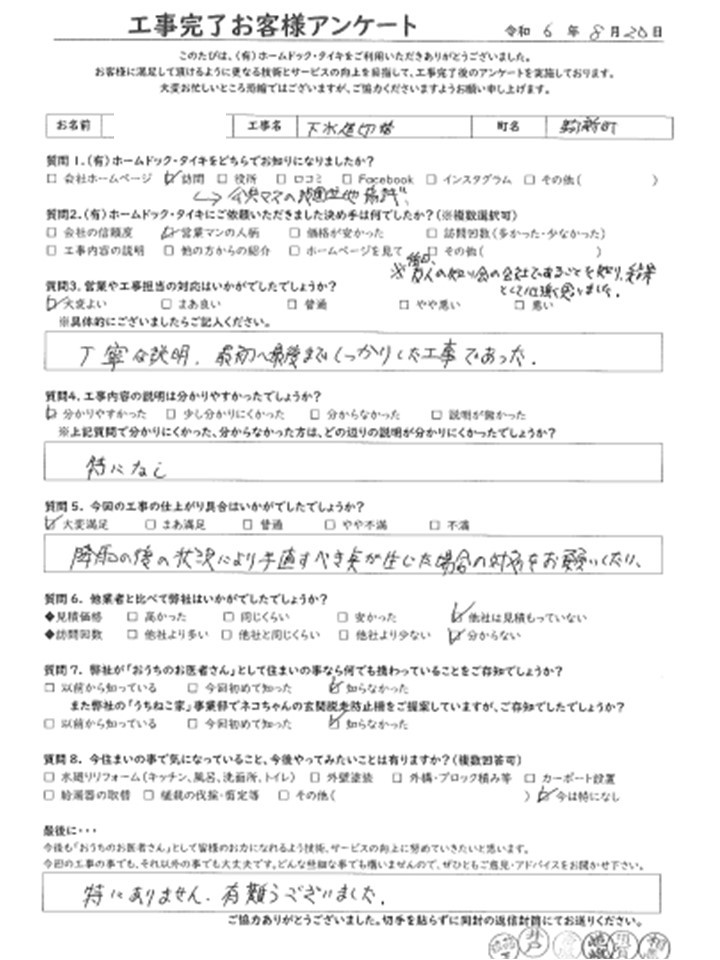 工事完了お客様アンケート 令和 6 年 8 月 20 日
このたびは、(有)ホームドック・タイキをご利用いただきありがとうございました。
お客様に満足して頂けるように更なる技術とサービスの向上を目指して、工事完了後のアンケートを実施しております。
大変お忙しいところ恐縮ではございますが、ご協力くださいますようお願い申し上げます。
お名前 工事名 下水道切替 町名 駒新町
質問 1. (有)ホームドック・タイキをどちらでお知りになりましたか?
□ 会社ホームページ ☑ 訪問 □ 役所 □ 口コミ □ Facebook □ インスタグラム □ その他( )
質問2. (有)ホームドック・タイキにご依頼いただきました決め手は何でしたか?(※複数選択可)
□ 会社の信頼度 ☑ 営業マンの人柄 □ 価格が安かった □ 訪問回数(多かった・少なかった)
□ 工事内容の説明 □ 他の方からの紹介 □ ホームページを見て □ その他( )
※ 知り合の会社であることを知り、結果
質問3. 営業や工事担当の対応はいかがでしたでしょうか?
☑ 大変よい □ まあ良い □ 普通 □ やや悪い □ 悪い
※具体的にございましたらご記入ください。
丁寧な説明、最初〜最後までしっかりした工事であった。
質問4. 工事内容の説明は分かりやすかったでしょうか?
☑ 分かりやすかった □ 少し分かりにくかった □ 分からなかった □ 説明が無かった
※上記質問で分かりにくかった、分からなかった方は、どの辺りの説明が分かりにくかったでしょうか?
特になし
質問 5. 今回の工事の仕上がり具合はいかがでしたでしょうか?
☑ 大変満足 □ まあ満足 □ 普通 □ やや不満 □ 不満
降雨の後の状況により手直すべき点が生じた場合の対応をお願いしたい。
質問 6. 他業者と比べて弊社はいかがでしたでしょうか?
◆見積価格 □ 高かった □ 同じくらい □ 安かった ☑ 他社は見積もっていない
◆訪問回数 □ 他社より多い □ 他社と同じくらい □ 他社より少ない ☑ 分からない
質問 7. 弊社が「おうちのお医者さん」として住まいの事なら何でも携わっていることをご存知でしょうか?
□ 以前から知っている □ 今回初めて知った ☑ 知らなかった
また弊社の「うちねこ家」事業部でネコちゃんの玄関脱走防止柵をご提案していますが、ご存知でしたでしょうか?
□ 以前から知っている □ 今回初めて知った ☑ 知らなかった
質問 8. 今住まいの事で気になっていること、今後やってみたいことは有りますか?(複数回答可)
□ 水廻りリフォーム(キッチン、風呂、洗面所、トイレ) □ 外壁塗装 □ 外構・ブロック積み等 □ カーポート設置
□ 給湯器の取替 □ 植栽の伐採・剪定等 □ その他( ) ☑ 今は特になし
最後に・・・
今後も「おうちのお医者さん」として皆様のお力になれるよう技術、サービスの向上に努めていきたいと思います。
今回の工事の事でも、それ以外の事でも大丈夫です。どんな些細な事でも構いませんので、ぜひともご意見・アドバイスをお聞かせ下さい。
特にありません。有難うございました。
ご協力ありがとうございました。切手を貼らずに同封の返信封筒にてお送りください。